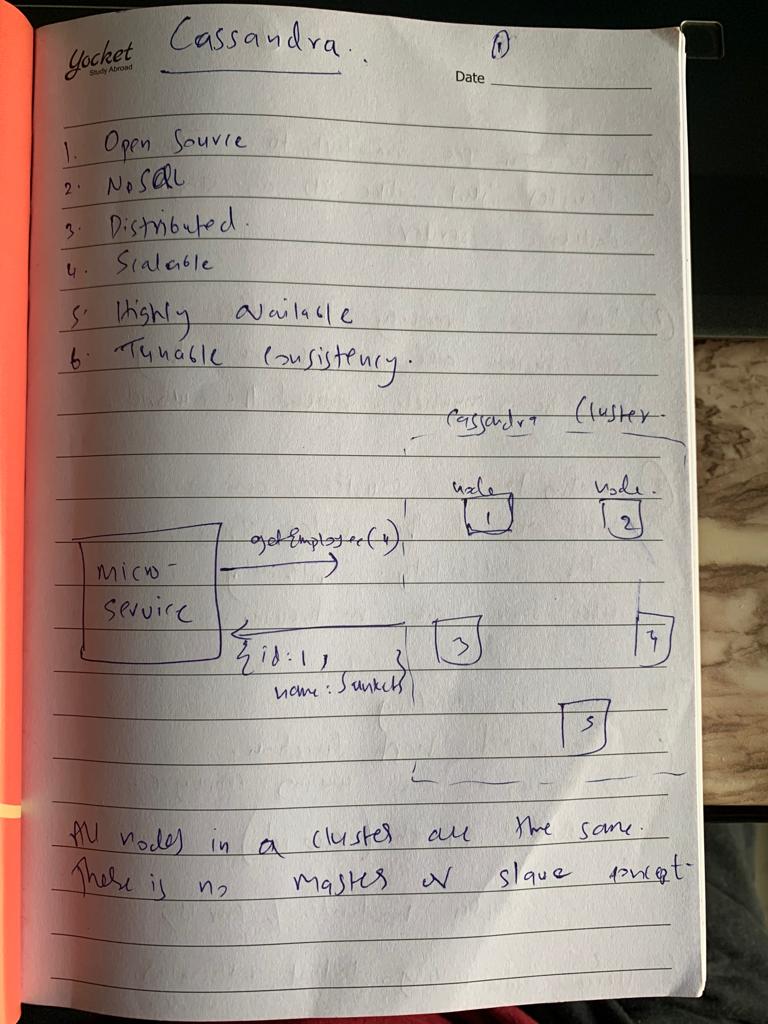 Yocket
Study Abroad
Cassandra.
1
Date
1. Open Source
2. NoSQL
3. Distributed.
4. Scalable
5. Highly available
6. Tunable Consistency.
Cassandra Cluster
node
node.
1
2
getEmployee( )
micro-
service
3
4
{id:1,
name: Sanket}
5
All nodes in a cluster are the same.
There is no master or slave concept.